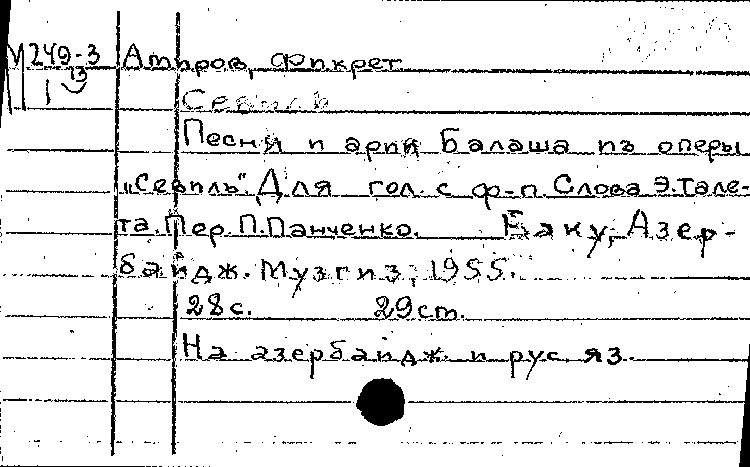 М 249-3 Амиров, Фикрет
13
1
Севиль
Песни и арии Балаша из оперы
„Севиль". Для гол. с ф-п. Слова Э.Тале-
та. Пер. П.Панченко. Баку, Азер-
байдж. Музгиз, 1955.
28с. 29ст.
На азербайдж. и рус. яз.